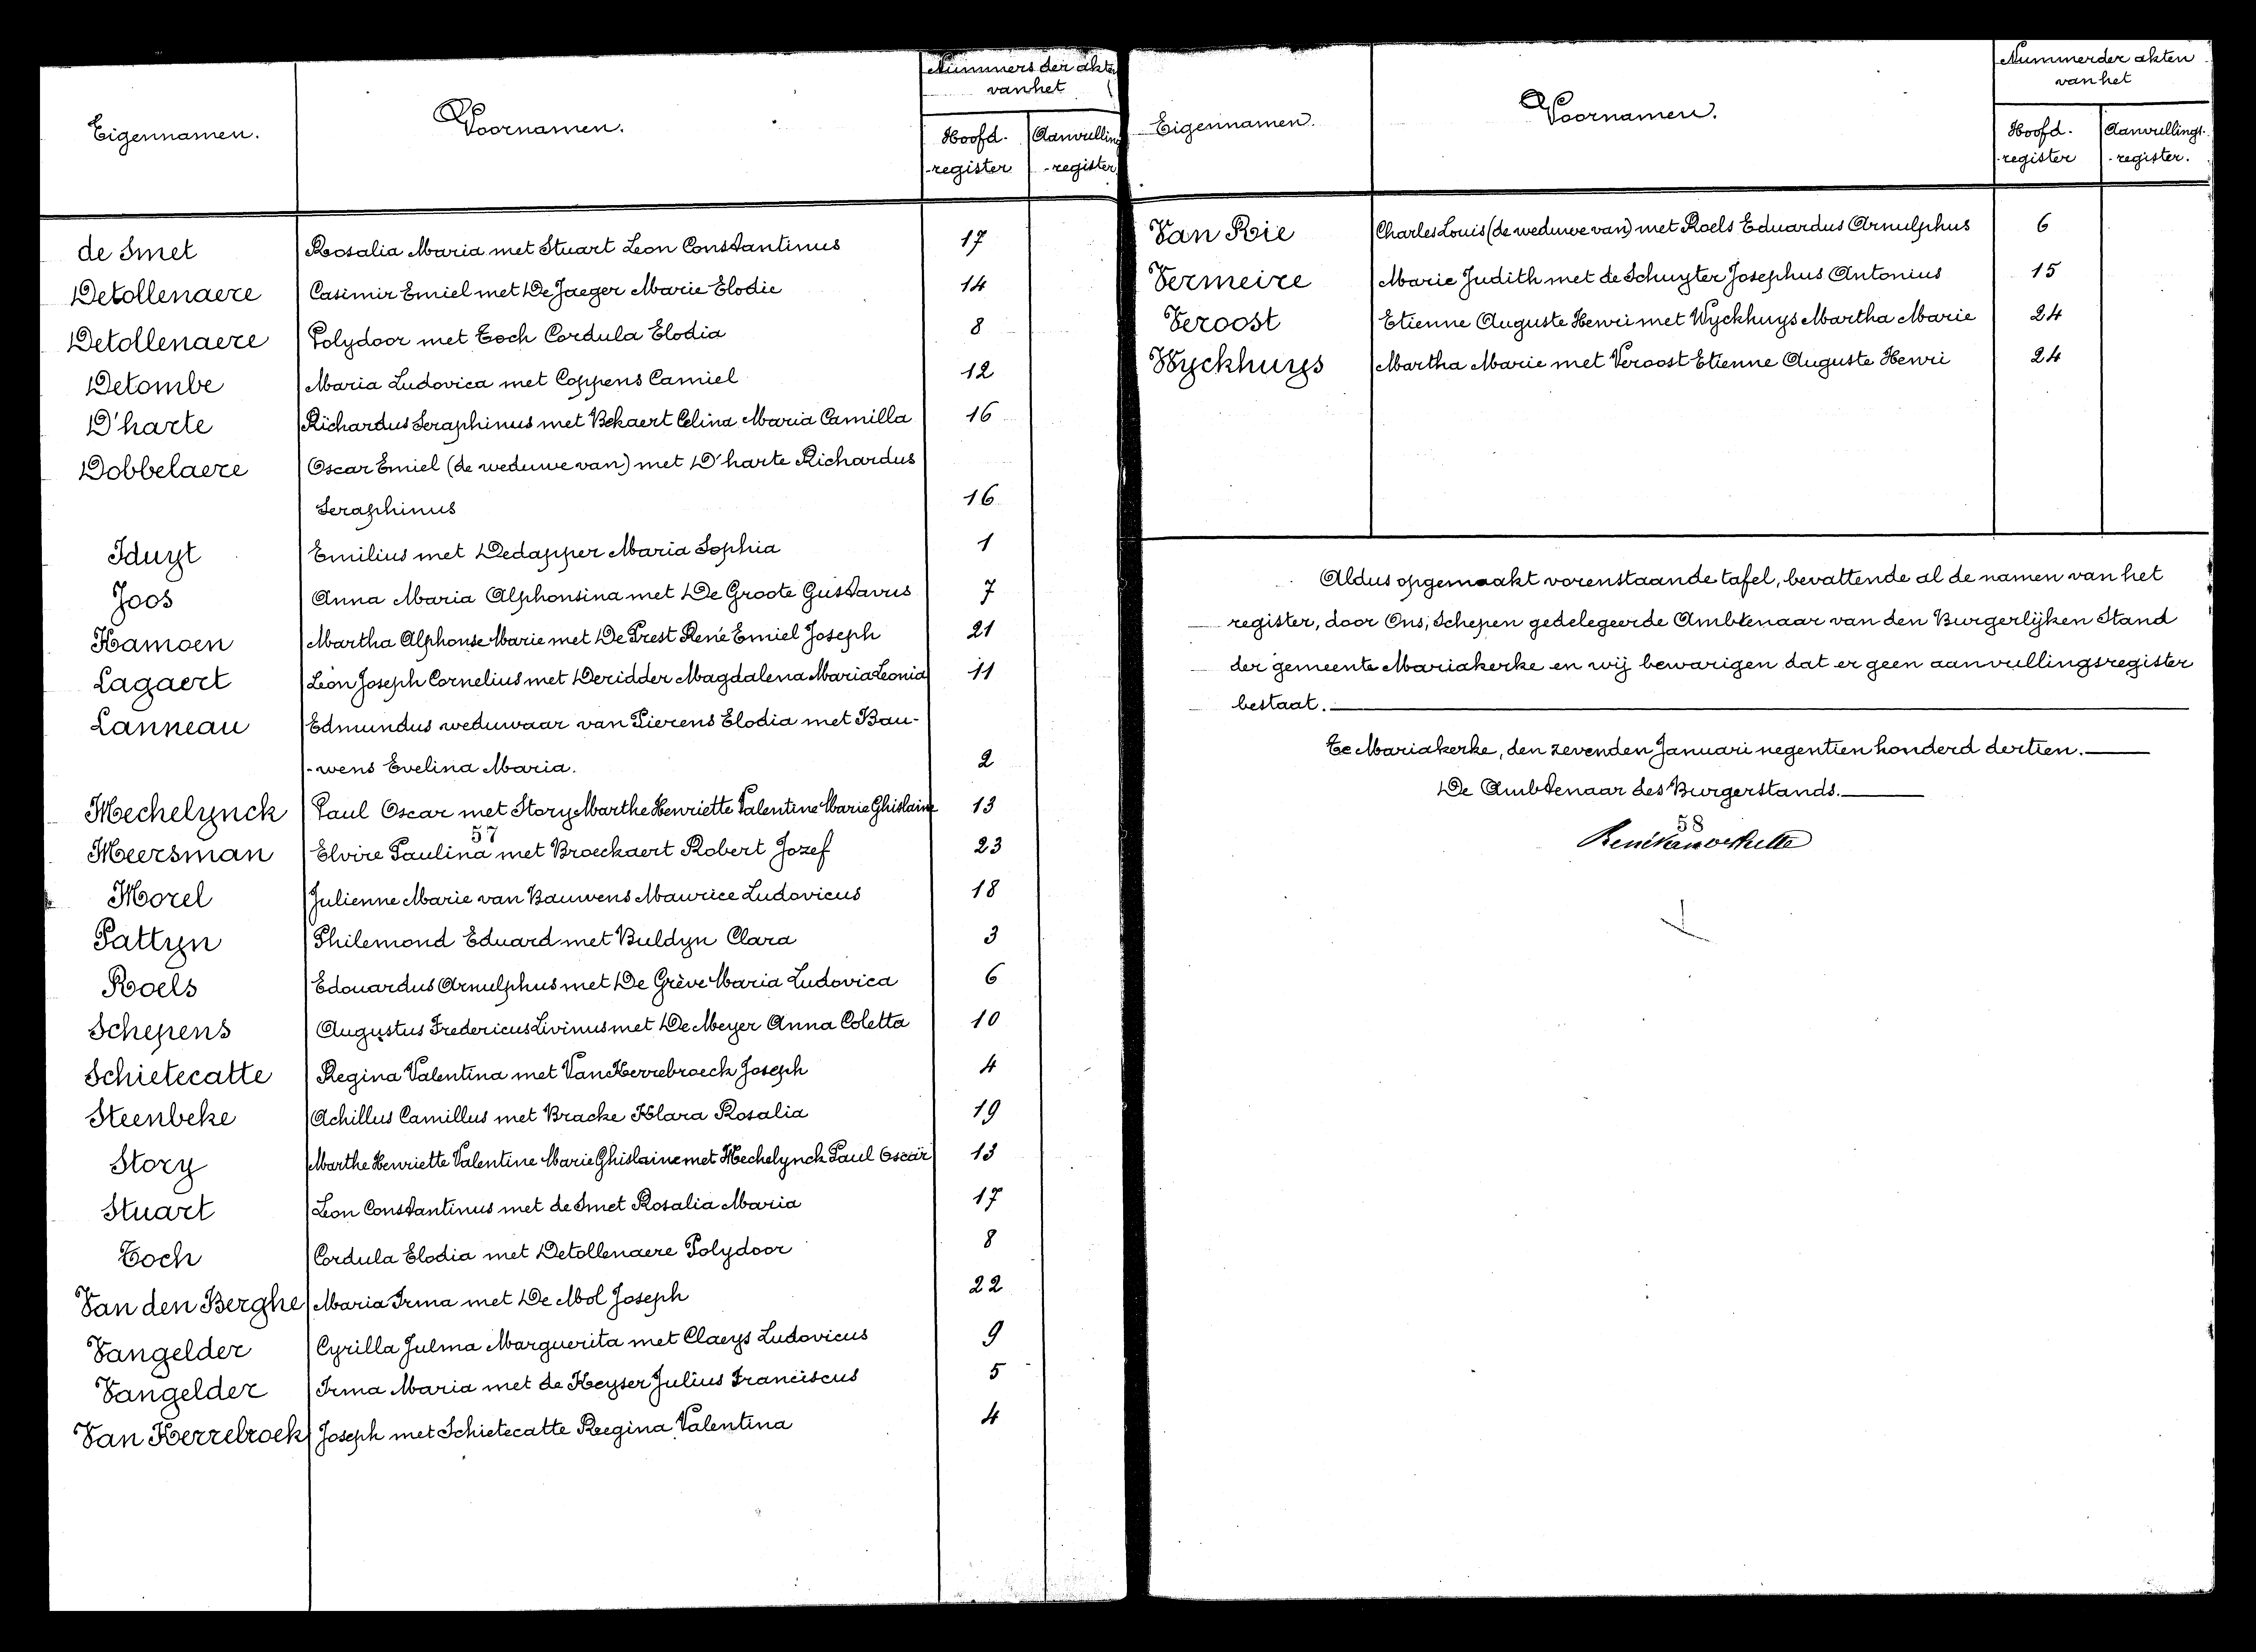 Nummers der akten
van het
Eigennamen.
Voornamen.
Hoofd- Aanvullings
-register -register
de Smet Rosalia Maria met Stuart Leon Constantinus 17
Detollenaere Casimir Emiel met De Jaeger Marie Elodie 14
Detollenaere Polydoor met Toch Cordula Elodia 8
Detombe Maria Ludovica met Coppens Camiel 12
D'harte Richardus Seraphinus met Bekaert Celina Maria Camilla 16
Dobbelaere Oscar Emiel (de weduwe van) met D'harte Richardus
Seraphinus 16
Iduyt Emilius met Dedapper Maria Sophia 1
Joos Anna Maria Alphonsina met De Groote Gustavus 7
Kamoen Martha Alphonse Marie met De Prest René Emiel Joseph 21
Lagaert Léon Joseph Cornelius met Deridder Magdalena Maria Leonia 11
Lanneau Edmundus weduwaar van Pierens Elodia met Bau-
-wens Evelina Maria. 2
Mechelynck Paul Oscar met Story Marthe Henriette Valentine Marie Ghislaine 13
57
Meersman Elvire Paulina met Broeckaert Robert Jozef 23
Morel Julienne Marie van Bauwens Maurice Ludovicus 18
Pattyn Philemond Eduard met Buldyn Clara 3
Roels Edouardus Arnulphus met De Grève Maria Ludovica 6
Schepens Augustus Fredericus Livinus met De Meyer Anna Coletta 10
Schietecatte Regina Valentina met Van Kerrebroeck Joseph 4
Steenbeke Achillus Camillus met Bracke Klara Rosalia 19
Story Marthe Henriette Valentine Marie Ghislaine met Mechelynck Paul Oscar 13
Stuart Leon Constantinus met de Smet Rosalia Maria 17
Toch Cordula Elodia met Detollenaere Polydoor 8
Van den Berghe Maria Irma met De Mol Joseph 22
Vangelder Cyrilla Julma Marguerita met Claeys Ludovicus 9
Vangelder Irma Maria met de Keyser Julius Franciscus 5
Van Kerrebroek Joseph met Schietecatte Regina Valentina 4
Nummer der akten
van het
Eigennamen.
Voornamen.
Hoofd- Aanvullings-
-register -register.
Van Rie Charles Louis (de weduwe van) met Roels Eduardus Arnulphus 6
Vermeire Marie Judith met de Schuyter Josephus Antonius 15
Veroost Etienne Auguste Henri met Wyckhuys Martha Marie 24
Wyckhuys Martha Marie met Veroost Etienne Auguste Henri 24
Aldus opgemaakt vorenstaande tafel, bevattende al de namen van het
register, door Ons, Schepen gedelegeerde Ambtenaar van den Burgerlijken Stand
der gemeente Mariakerke en wij bewarigen dat er geen aanvullingsregister
bestaat.
Te Mariakerke, den zevenden Januari negentien honderd dertien.
De Ambtenaar des Burgerstands.
58